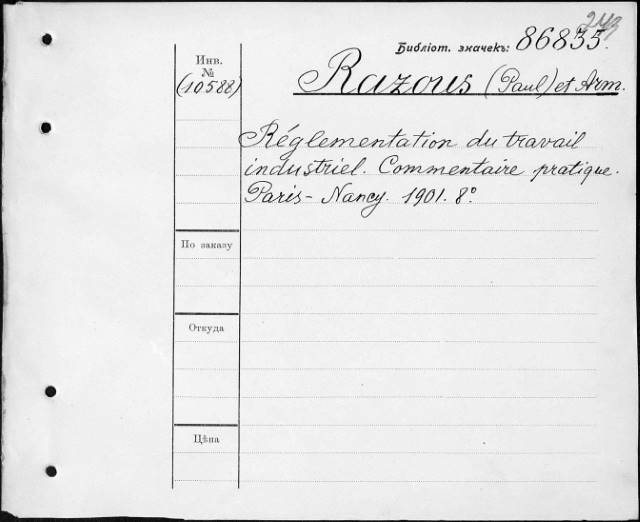 243
Библіот. значекъ: 86835.
Инв.
№
(10588)
Razous (Paul) et Arm.
Réglementation du travail
industriel. Commentaire pratique.
Paris - Nancy. 1901. 8°.
По заказу
Откуда
Цѣна